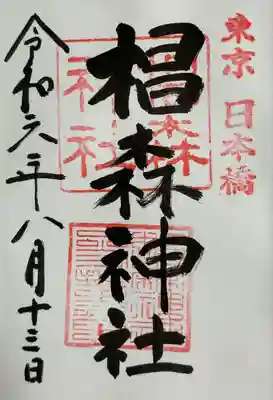 東京 日本橋
椙森神社
椙森
神社
令和六年八月十三日